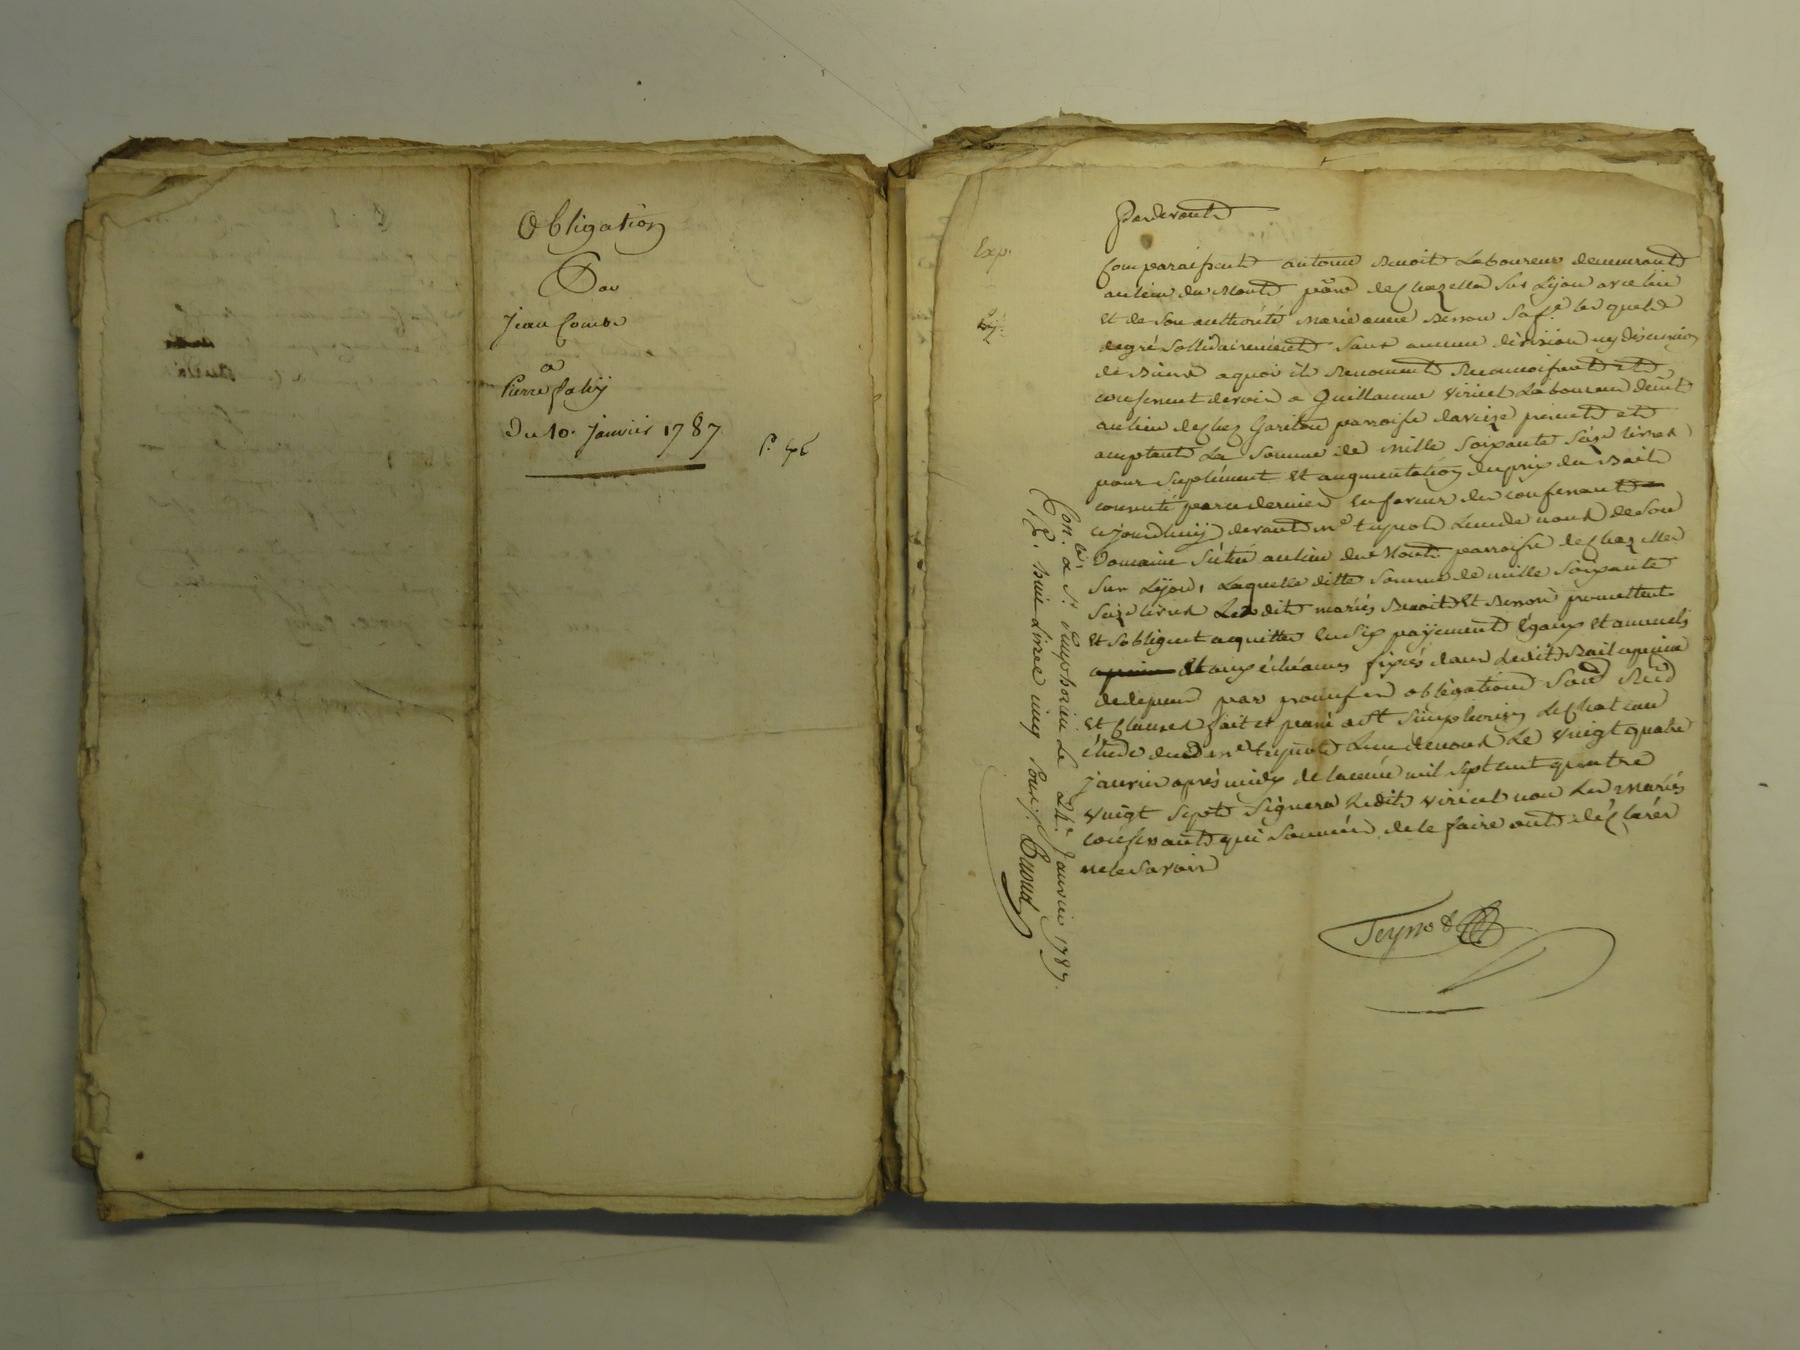 Obligation
Par
Jean Comte
a
Pierre
Du 10. Janvier 1787
Exp.
Pardevant
Comparaissent antoine Benoit Laboureur demeurant
au lieu du Mont pâre de Chazelles Sur Lÿon avec lui
et de Son authorité Marie anne Benson Sa fe lesquels
degré Sollidairement Sans aucune division nÿ discussion
de Biens a quoi ils Renoncent Reconnoissent et
confessent devoir a Guillaume Viricel Laboureur demt
au lieu de Chez Garitou parroisse daveize present et
acceptant La Somme de Mille Soixante Seize livres
pour Suplément et augmentation du prix du Bail
consenti par ce dernier en faveur des confessants
cejourdhuÿ devant me teynod L'un de nous de Son
Domaine Situé au lieu du Mont parroisse de Chazelles
Sur Lÿon, Laquelle ditte Somme de mille Soixante
Seize livres Lesdits mariés Benoit Et Benson promettent
Et S'obligent acquitter en Six payements Égaux Et annuels
Et aux échéances fixées dans Ledit Bail a peine
de depens par nouvelles obligations Soud Red
et Clauses fait et passé a St Simphorien le Chateau
étude dud me teynod L'un de nous Le Vingt quatre
Janvier après midy de l'année mil Sept cent quatre
Vingt Sept Signera Ledit Viricel non Les mariés
confessants qui Sommés de le faire ont déclarér
ne le Savoir
Teynod
Con. lé a St. Simphorien Le 24e Janvier 1787.
R. huit Livres cinq Sous /.